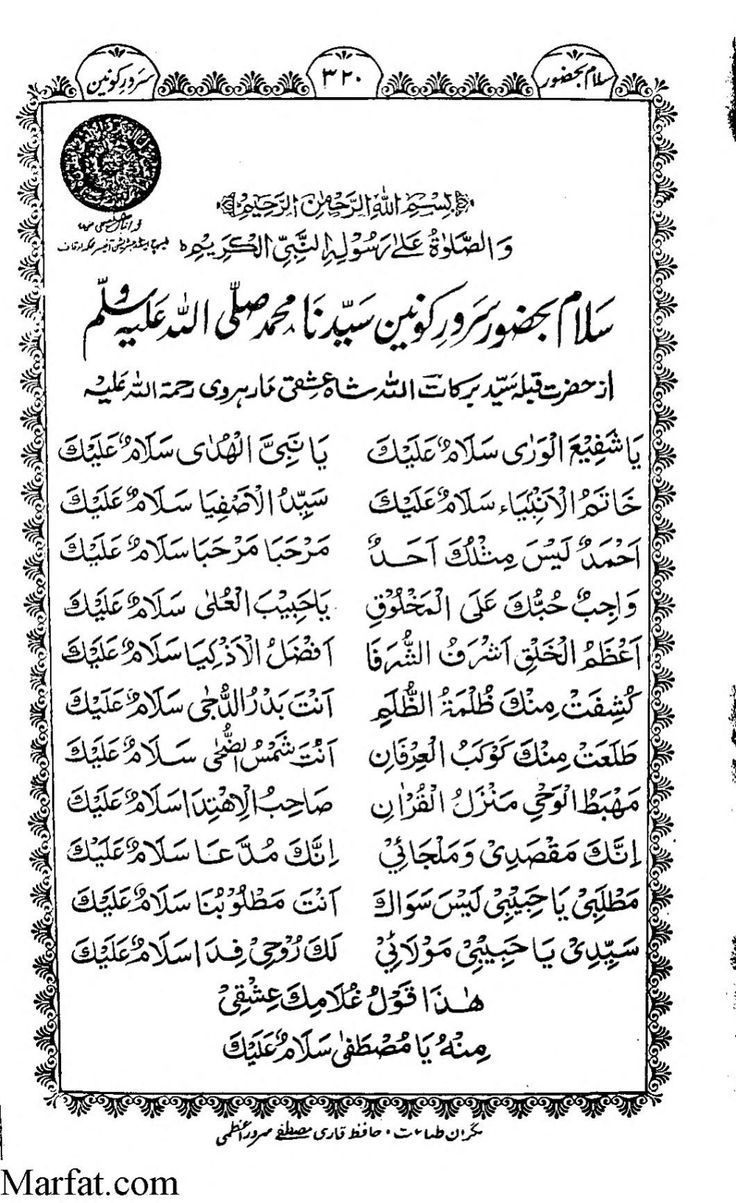 سلام بحضور ۳۲۰ سرورِ کونین
بِسْمِ اللهِ الرَّحْمٰنِ الرَّحِیْمِ
وَالصَّلٰوةُ عَلٰی رَسُوْلِهِ النَّبِیِّ الْکَرِیْمِ
سلام بحضور سرورِ کونین سیّدنا محمد صلّی اللہ علیہ وسلّم
از حضرت قبلہ سیّد برکات اللہ شاہ عشقی مارہروی رحمۃ اللہ علیہ
یَا شَفِیْعَ الْوَرٰی سَلَامٌ عَلَیْكَ یَا نَبِیَّ الْهُدٰی سَلَامٌ عَلَیْكَ
خَاتَمُ الْاَنْبِیَاء سَلَامٌ عَلَیْكَ سَیِّدُ الْاَصْفِیَا سَلَامٌ عَلَیْكَ
اَحْمَدٌ لَیْسَ مِثْلُكَ اَحَدٌ مَرْحَبَا مَرْحَبَا سَلَامٌ عَلَیْكَ
وَاجِبٌ حُبُّكَ عَلَی الْمَخْلُوْقِ یَا حَبِیْبَ الْعُلٰی سَلَامٌ عَلَیْكَ
اَعْظَمُ الْخَلْقِ اَشْرَفُ الشُّرَفَا اَفْضَلُ الْاَذْکِیَا سَلَامٌ عَلَیْكَ
کُشِفَتْ مِنْكَ ظُلْمَةُ الظُّلَمِ اَنْتَ بَدْرُ الدُّجٰی سَلَامٌ عَلَیْكَ
طَلَعَتْ مِنْكَ کَوْکَبُ الْعِرْفَانِ اَنْتَ شَمْسُ الضُّحٰی سَلَامٌ عَلَیْكَ
مَهْبَطُ الْوَحْیِ مَنْزَلُ الْقُرْاٰنِ صَاحِبُ الْاِهْتِدَا سَلَامٌ عَلَیْكَ
اِنَّكَ مَقْصَدِیْ وَمَلْجَائِیْ اِنَّكَ مُدَّعَا سَلَامٌ عَلَیْكَ
مَطْلَبِیْ یَا حَبِیْبِیْ لَیْسَ سَوَاكَ اَنْتَ مَطْلُوْبُنَا سَلَامٌ عَلَیْكَ
سَیِّدِیْ یَا حَبِیْبِیْ مَوْلَائِیْ لَكَ رُوْحِیْ فِدَا سَلَامٌ عَلَیْكَ
هٰذَا قَوْلُ غُلَامِكَ عِشْقِیْ
مِنْهُ یَا مُصْطَفٰی سَلَامٌ عَلَیْكَ
نگران طباعت، حافظ قاری مصطفٰے سرور اعظمی
Marfat.com